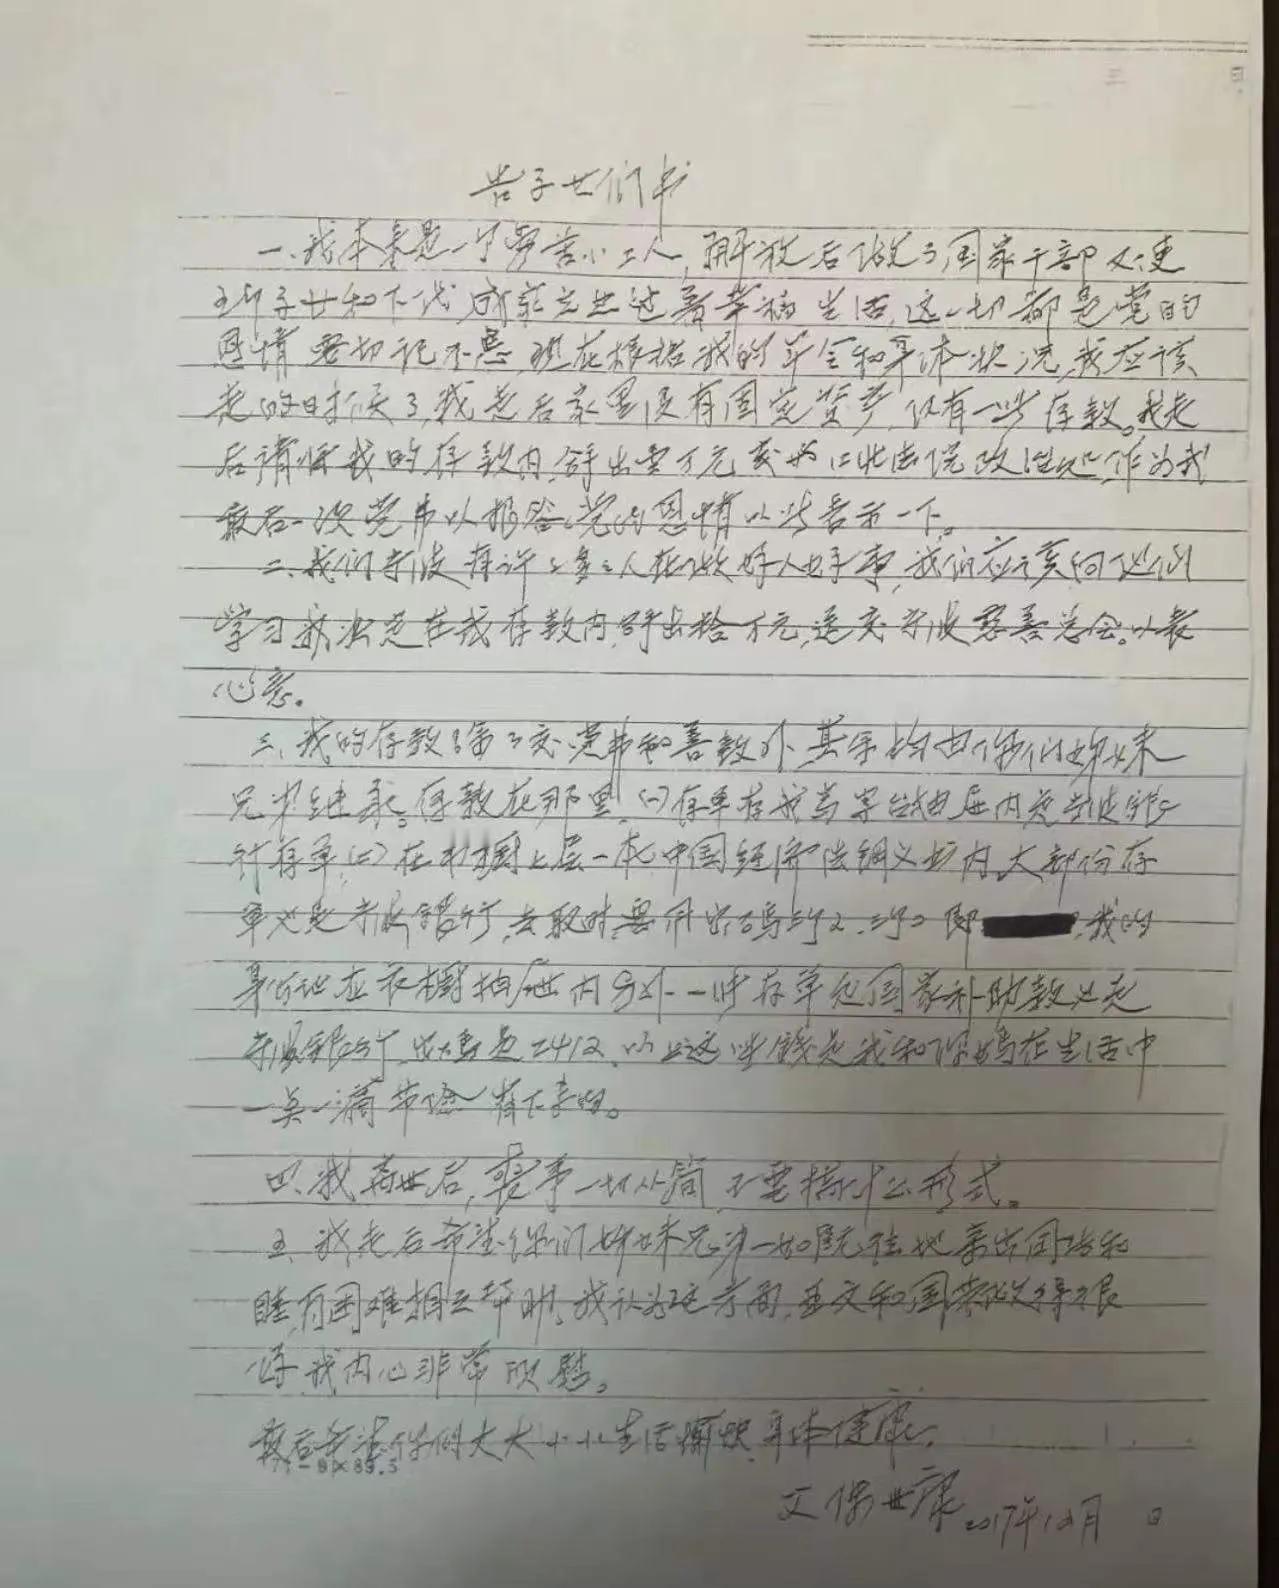 告子女们书
一、我本来是一个劳苦小工人,解放后做了国家干部又使
子女和下代成家立业过着幸福生活,这一切都是党的
恩情要切记不忘,现在根据我的年令和身体状况,我应该
走的时候了,我走后家里没有固定资产,仅有一些存款。我走
后请将我的存款内,拿出壹万元交给江北法院政治处,作为我
最后一次党费以报答党的恩情以此表示一下。
二、我们宁波有许许多多人在做好人好事,我们应该向他们
学习,我决定在我存款内,拿出拾万元,送交宁波慈善总会。以表
心意。
三、我的存款除了交党费和善款外,其余均由你们姊妹
兄弟继承。存款在那里,(一)存单存我写字台抽屉内是宁波银
行存单,(二)在书橱上层一本中国经济法纲义书内,大部份存
单也是宁波银行,去取时要用
身份证在衣橱抽屉内,另外一些存单包国家补助款也是
宁波银行,号码是2412,以上这些钱是我和你妈在生活中
一点一滴节俭省下来的。
四、我离世后,丧事一切从简,不要搞什么形式。
五、我走后希望你们姊妹兄弟一如既往地亲密团结和
睦,有困难相互帮助,我认为这方面,亚文和国荣做得很
好,我内心非常欣慰。
最后希望你们大大小小生活愉快,身体健康。
-8×89.5
2017年10月 日